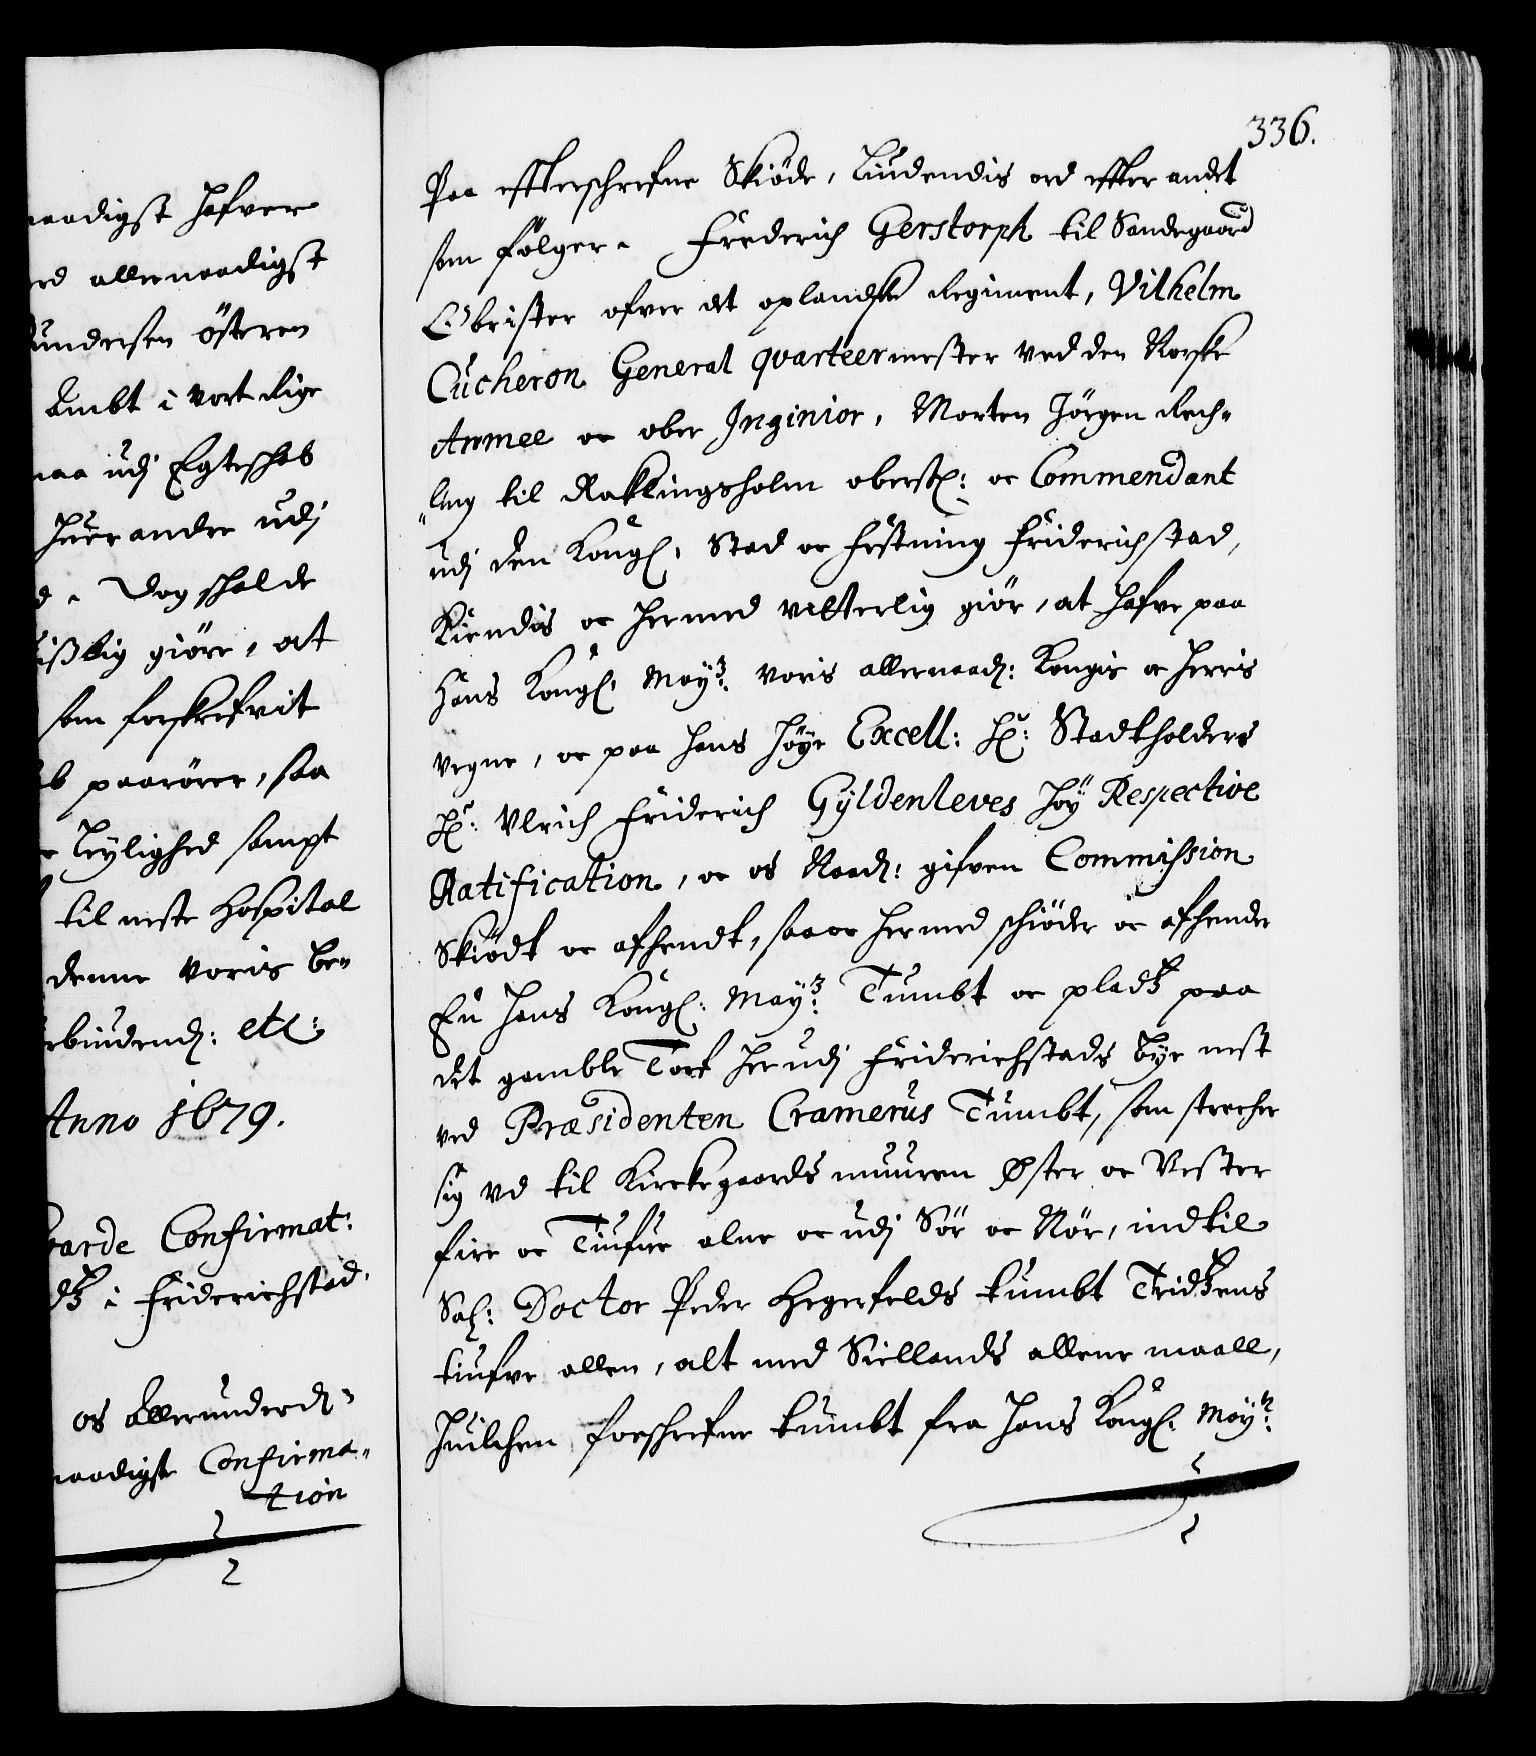 naadigst hafver
ed allernaadigst
undersen österen
Ambt i vort Rige
maa udj Egteschab
huer andre udj
d. Dog schal de
uißlig giöre, at
som forskrefvit
ab paarører, saa
Leylighed sampt
til neste Hospital
denne voris be-
rbindend: etc:
Anno 1679.
aarde Confirmat:
dtz i Friderichstad.
os Allerunderd:
naadigste Confirma-
tion
336.
Paa efterschrefne Skiöde, Liudendis ord efter andet
som fölger. Frederich Gerstorph til Sandegaard
Obrister ofver det oplandske Regiment, Vilhelm
Cucheron General quarteermester ved den Norske
Armee oc ober Inginior, Morten Jörgen Rech-
"ling til Raklingsholm oberst: oc Commendant
udj den Kongl. Stad oc Festning Friderichstad,
Kiendis oc hermed vitterlig giör, at hafve paa
Hans Kongl. May: voris allernaad: Kongis oc Herris
vegne, oc paa hans höye Excell: Hr: Stadtholders
Hr: Ulrich Friderich Gyldenleves höy Respective
Ratification, oc os Naad: gifven Commission
Skiödt oc afhendt, saa oc hermed schiöder oc afhender
En hans Kongl: May: Tumbt oc pladtz paa
det gamble Torf her udj Friderichstads bye nest
ved Præsidenten Cramerus Tumbt, som strecher
sig ud til Kirckegaards muuren Øster oc Vester
fire oc Tiufue alne oc udj Sör oc Nör, indtil
Sal: Doctor Peder Hegerfelds tumbt Tridtzens
tiufve allen, alt med Siellands allene maall,
huilchen forschrefne tumbt fra hans Kongl. May: